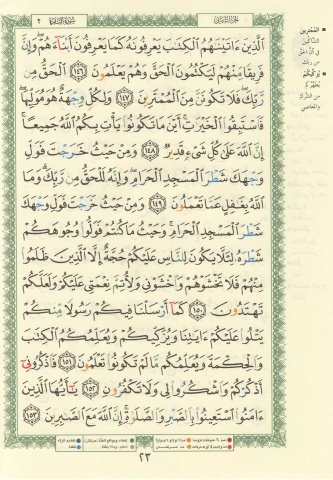 الجزء الثاني
سورة البقرة
٢
الَّذِينَ ءَاتَيْنَٰهُمُ الْكِتَٰبَ يَعْرِفُونَهُ كَمَا يَعْرِفُونَ أَبْنَآءَهُمْ وَإِنَّ
فَرِيقًا مِّنْهُمْ لَيَكْتُمُونَ الْحَقَّ وَهُمْ يَعْلَمُونَ ١٤٦ الْحَقُّ مِن
رَّبِّكَ فَلَا تَكُونَنَّ مِنَ الْمُمْتَرِينَ ١٤٧ وَلِكُلٍّ وِجْهَةٌ هُوَ مُوَلِّيهَا
فَاسْتَبِقُوا الْخَيْرَٰتِ أَيْنَ مَا تَكُونُوا يَأْتِ بِكُمُ اللَّهُ جَمِيعًا
إِنَّ اللَّهَ عَلَىٰ كُلِّ شَىْءٍ قَدِيرٌ ١٤٨ وَمِنْ حَيْثُ خَرَجْتَ فَوَلِّ
وَجْهَكَ شَطْرَ الْمَسْجِدِ الْحَرَامِ وَإِنَّهُ لَلْحَقُّ مِن رَّبِّكَ وَمَا
اللَّهُ بِغَٰفِلٍ عَمَّا تَعْمَلُونَ ١٤٩ وَمِنْ حَيْثُ خَرَجْتَ فَوَلِّ وَجْهَكَ
شَطْرَ الْمَسْجِدِ الْحَرَامِ وَحَيْثُ مَا كُنتُمْ فَوَلُّوا وُجُوهَكُمْ
شَطْرَهُ لِئَلَّا يَكُونَ لِلنَّاسِ عَلَيْكُمْ حُجَّةٌ إِلَّا الَّذِينَ ظَلَمُوا
مِنْهُمْ فَلَا تَخْشَوْهُمْ وَاخْشَوْنِى وَلِأُتِمَّ نِعْمَتِى عَلَيْكُمْ وَلَعَلَّكُمْ
تَهْتَدُونَ ١٥٠ كَمَآ أَرْسَلْنَا فِيكُمْ رَسُولًا مِّنكُمْ
يَتْلُوا عَلَيْكُمْ ءَايَٰتِنَا وَيُزَكِّيكُمْ وَيُعَلِّمُكُمُ الْكِتَٰبَ
وَالْحِكْمَةَ وَيُعَلِّمُكُم مَّا لَمْ تَكُونُوا تَعْلَمُونَ ١٥١ فَاذْكُرُونِى
أَذْكُرْكُمْ وَاشْكُرُوا لِى وَلَا تَكْفُرُونِ ١٥٢ يَٰٓأَيُّهَا الَّذِينَ
ءَامَنُوا اسْتَعِينُوا بِالصَّبْرِ وَالصَّلَوٰةِ إِنَّ اللَّهَ مَعَ الصَّٰبِرِينَ ١٥٣
٢٣
الممترين
الشاكين
في أن الحق
من ربك
يزكيكم
يطهركم
من الشرك
والمعاصي